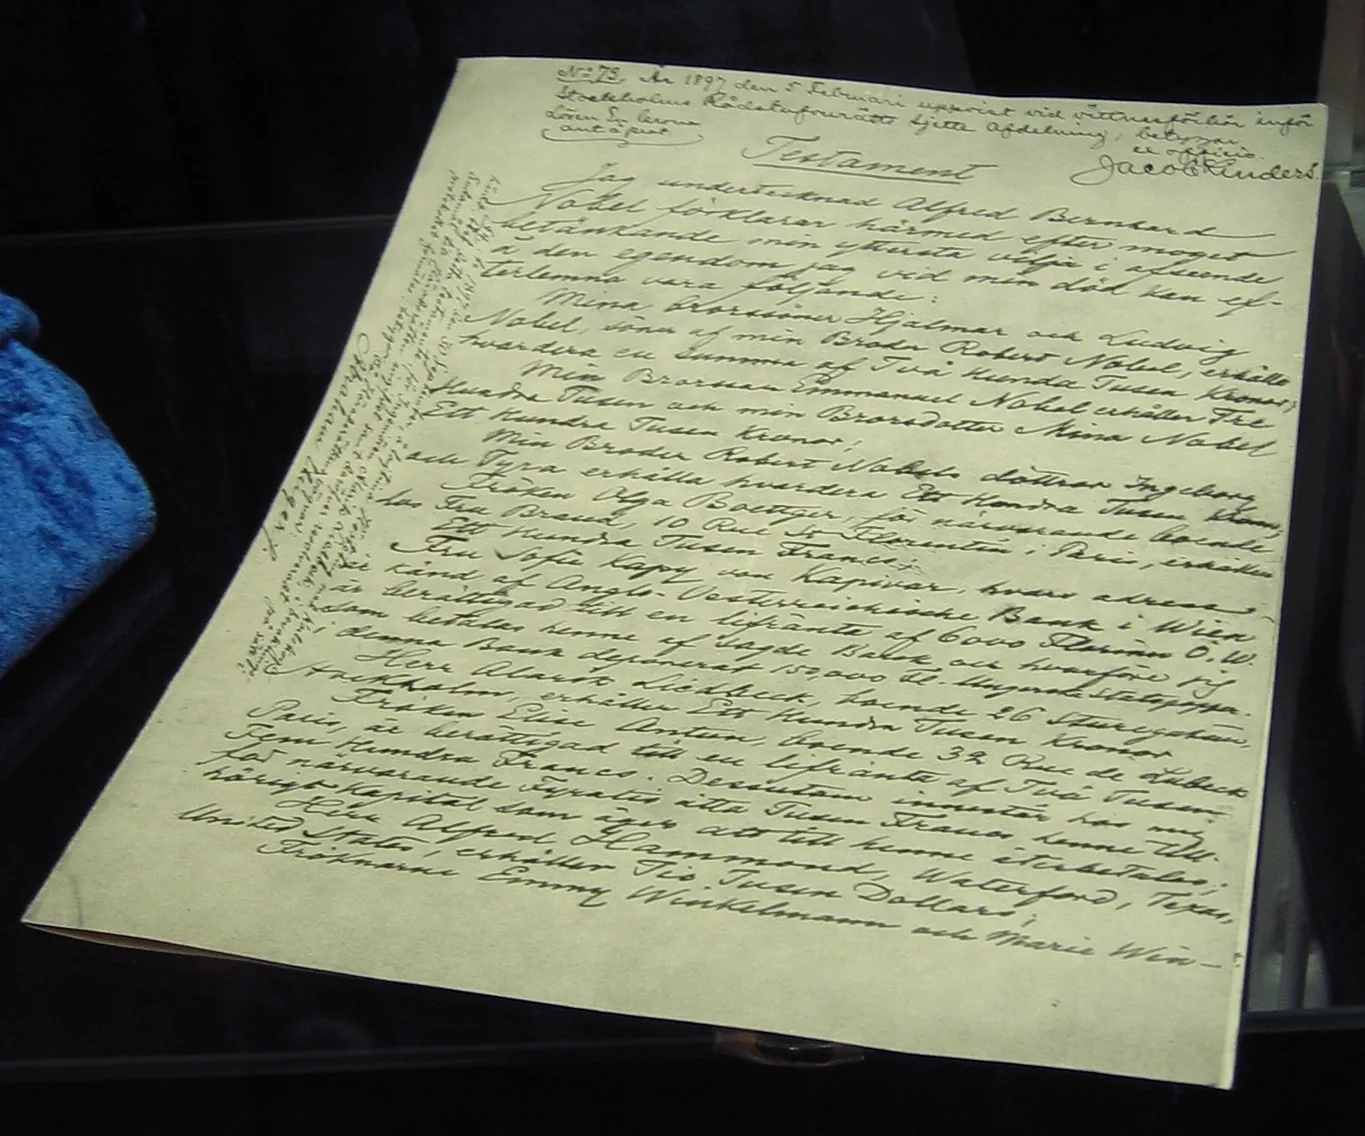 No 73. År 1897 den 5 Februari uppvist vid vittnesförhör inför
Stockholms Rådstufvurätts Sjette Afdelning; betygar
Lösen En krona
ex officio.
Testament
Jag undertecknad Alfred Bernhard
Nobel förklarar härmed efter moget
betänkande min yttersta vilja i afseende
å den egendom jag vid min död kan ef-
terlemna vara följande:
Mina Brorsöner Hjalmar och Ludvig
Nobel, söner af min Broder Robert Nobel, erhålla
hvardera en summa af Två Hundra Tusen Kronor;
Min Brorson Emmanuel Nobel erhåller Tre
Hundra Tusen och min Brorsdotter Mina Nobel
Ett Hundra Tusen Kronor;
Min Broder Robert Nobels döttrar Ingeborg
och Tyra erhålla hvardera Ett Hundra Tusen Kronor;
Fröken Olga Boettger, för närvarande boende
hos Fru Brand, 10 Rue St Florentin i Paris, erhåller
Ett Hundra Tusen Francs;
Fru Sofie Kapy von Kapivar, hvars adress
är känd af Anglo-Oesterreichische Bank i Wien
är berättigad till en lifränta af 6000 Florins Ö.W.
som betalas henne af sagde Bank och hvarföre jag
i denna Bank deponerat 150,000 Fl. i Ungerska statspapper.
Herr Alarik Liedbeck, boende 26 Sturegatan,
Stockholm, erhåller Ett Hundra Tusen Kronor
Fröken Elise Antun, boende 32 Rue de Lubeck
Paris, är berättigad till en lifränta af Två Tusen
Fem Hundra Francs. Dessutom innestår hos mig
för närvarande Fyratio åtta Tusen Francs henne till-
hörigt Kapital som äger att till henne återbetalas;
Herr Alfred Hammond, Waterford, Texas,
United States, erhåller Tio Tusen Dollars;
Fröknarne Emmy Winkelmann och Marie Win-